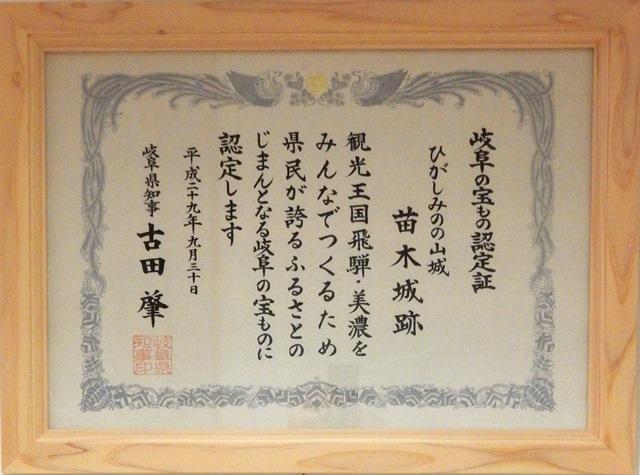 岐阜の宝もの認定証
ひがしみのの山城
苗木城跡
観光王国飛騨・美濃を
みんなでつくるため
県民が誇るふるさとの
じまんとなる岐阜の宝ものに
認定します
平成二十九年九月三十日
岐阜県知事 古田肇
岐阜県
知事印